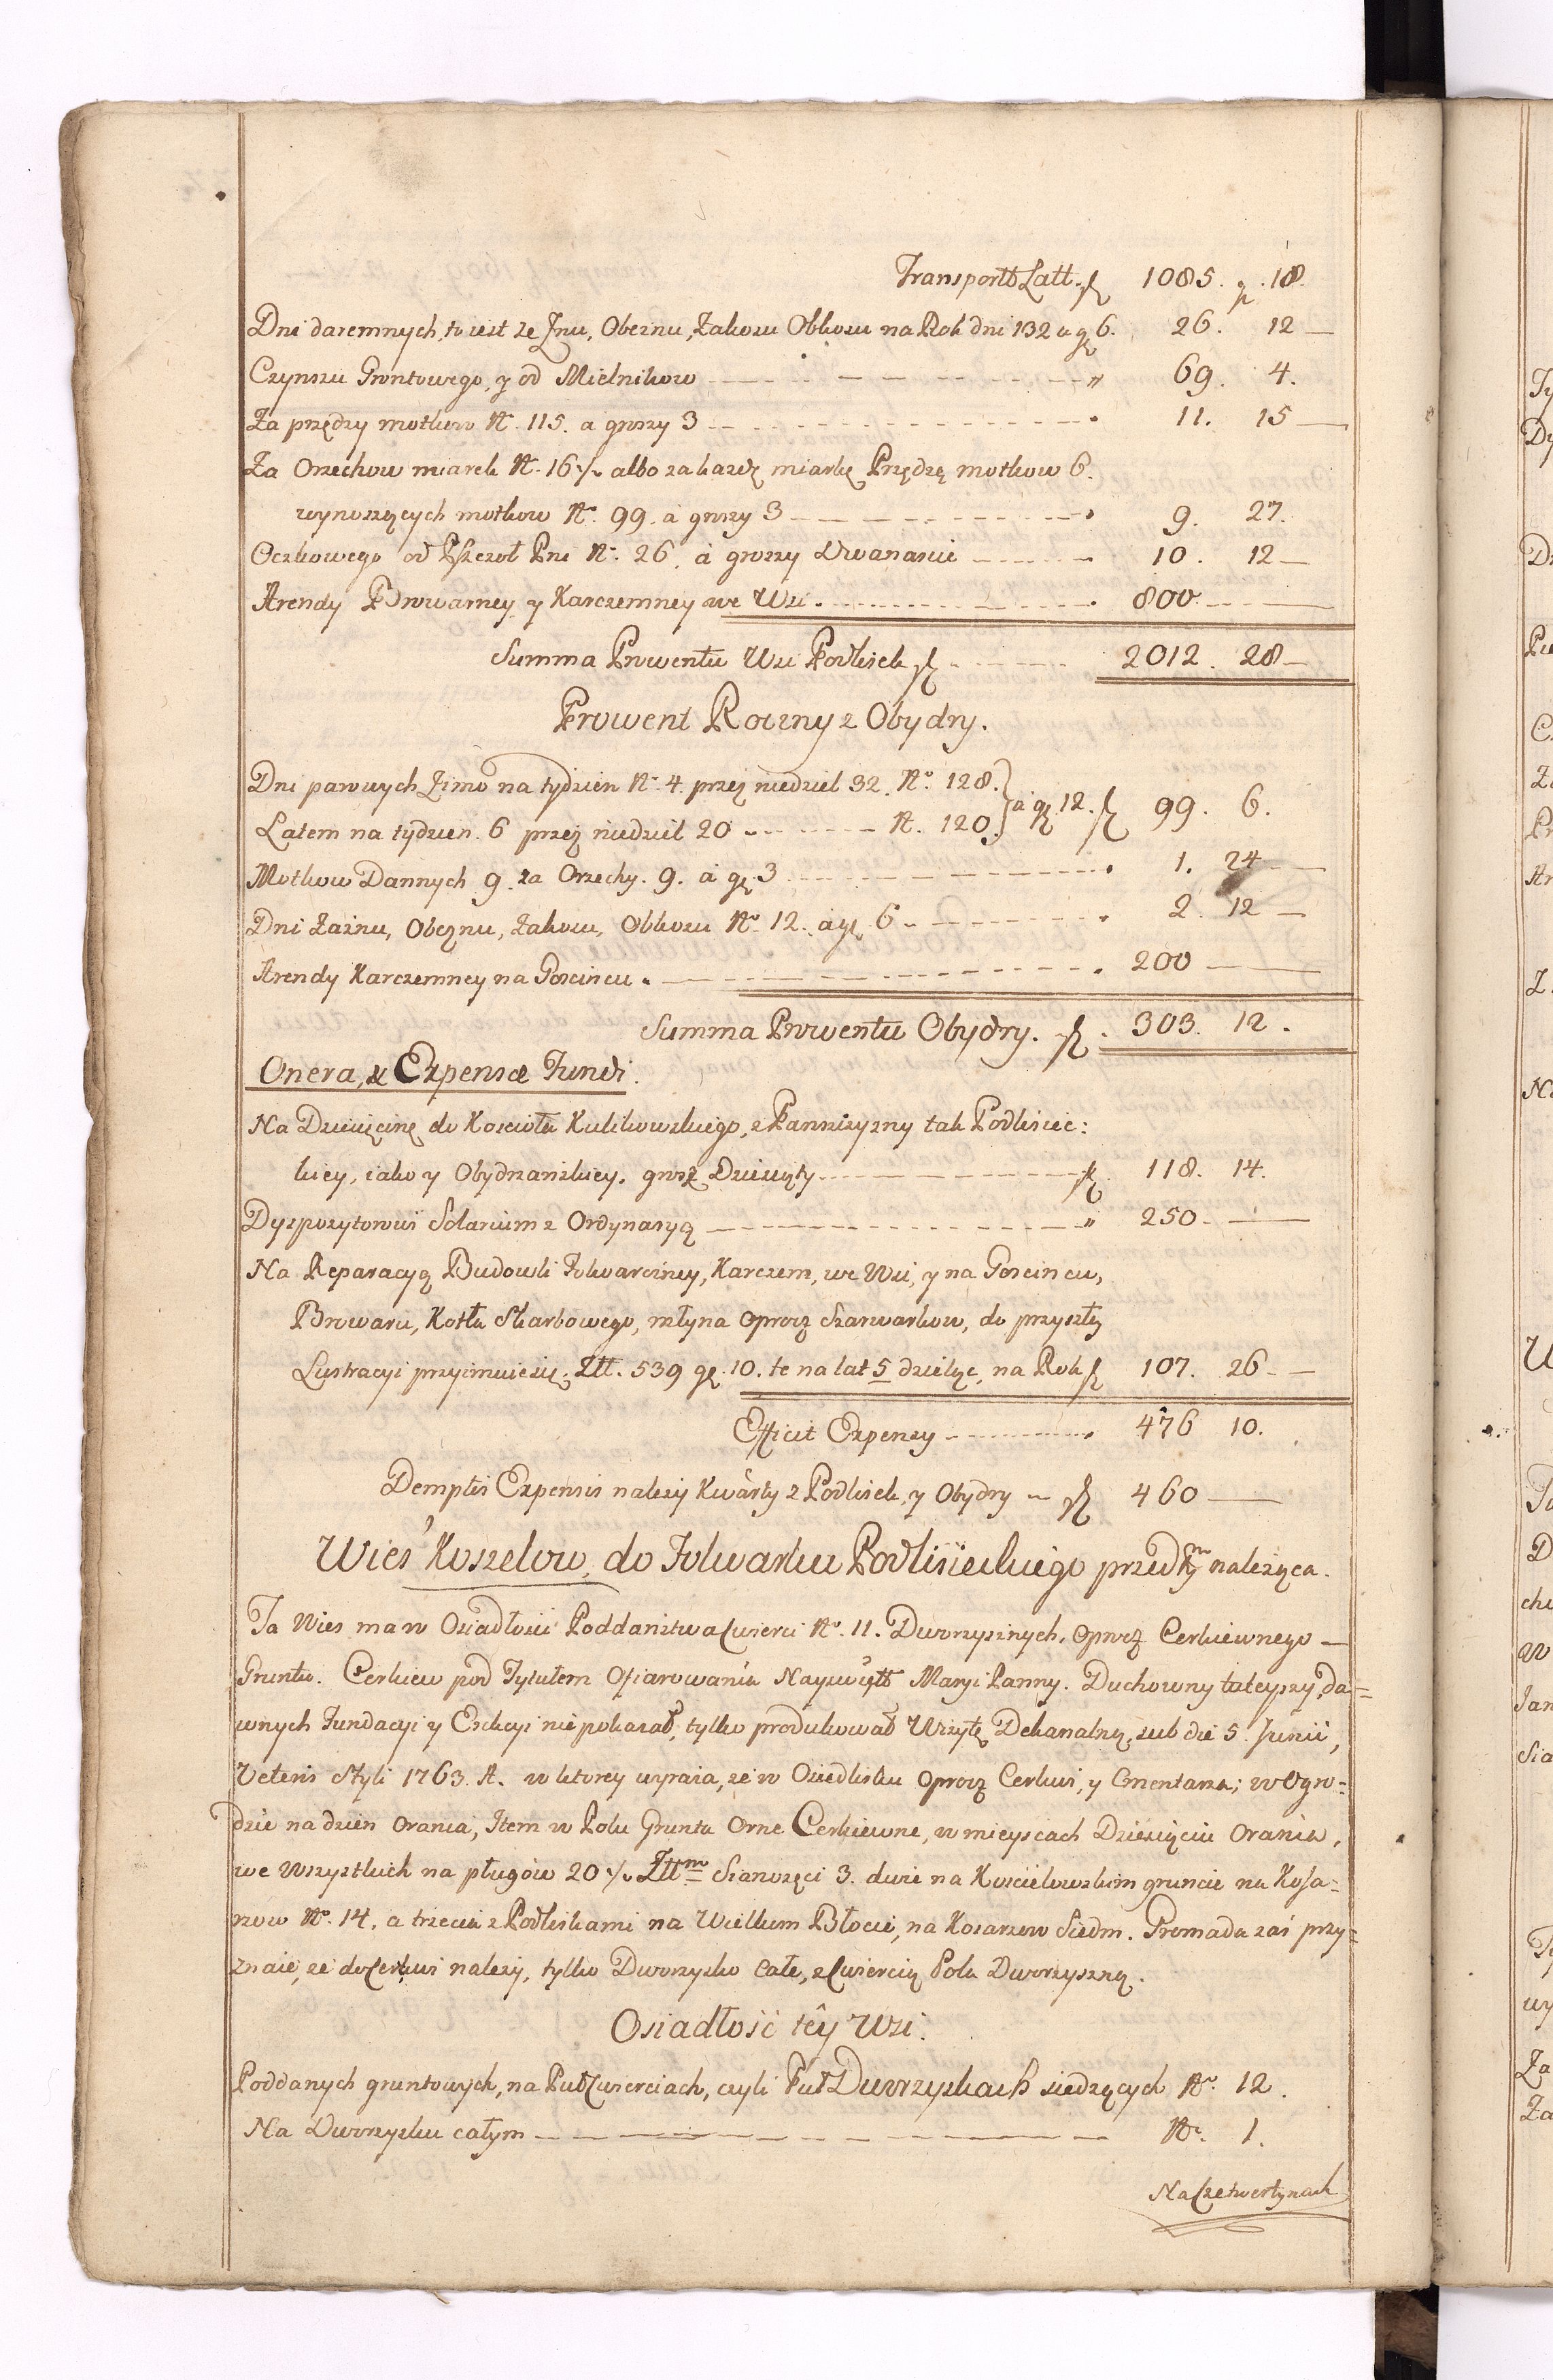 Transport Latt. zł 1085. gr. 18.
Dni daremnych, to iest ze Żnu, Obeznu, Zakosu Obkosu na Rok dni 132 a gr 6. 26. 12 —
Czynszu Gruntowego, y od Mielnikow — 69. 4.
Za przędzy motkow No. 115. a groszy 3 — 11. 15 —
Za Orzechow miarek No. 16 ½ albo za każdą miarkę Przędzę motkow 6.
wynoszących motkow No. 99. a groszy 3 — 9. 27.
Oczkowego od Pszczoł Pni No. 26. a groszy Dwanascie — 10. 12 —
Arendy Browarney y Karczemney we Wsi — 800 —
Summa Prowentu Wsi Podlisek zł — 2012. 28 —
Prowent Roczny z Obydry.
Dni parowych Zimo na tydzien No. 4. przez niedziel 32. No. 128.
a gr 12. zł 99. 6.
Latem na tydzien. 6 przez niedziel 20 — No. 120.
Motkow Dannych 9. za Orzechy. 9. a gr. 3 — 1. 24 —
Dni Zażnu, Obeznu, Zakosu, Obkosu No. 12. a gr. 6 — 2. 12 —
Arendy Karczemney na Goscincu — 200 —
Summa Prowentu Obydry. zł. 303. 12.
Onera, & Expensæ Fundi.
Na Dziesięcinę do Kościoła Kulikowskiego, z Pańszczyzny tak Podlisiec:
kiey, iako y Obydrzańskiey. grosz Dziesięty — zł 118. 14.
Dyspozytorowi Solarium z Ordynaryą — 250 —
Na Reparacyą Budowli Folwarczney, Karczem, we Wsi, y na Goscincu,
Browaru, Kotła Skarbowego, młyna oprocz Szarwarkow, do przyszłey
Lustracyi przyimuie się; Złt. 539 gr. 10. te na lat 5 dzieląc, na Rok zł 107. 26 —
Efficit Expensy — 476 10.
Demptis Expensis należy Kwarty z Podlisek, y Obydry — zł 460 —
Wieś Koszelow, do Folwarku Podlisieckiego przedtym należąca.
Ta Wies ma w Osiadłosci Poddaństwa Cwierci No. 11. Dworzysznych, oprocz Cerkiewnego —
Gruntu. Cerkiew pod Tytułem Ofiarowania Nayswięt Maryi Panny. Duchowny tuteyszy, da=
wnych Fundacyi y Erekcyi nie pokazał, tylko produkował Wizytę Dekanalną, sub die 5 Junii,
Veteris Styli 1763. A. w ktorey wyraia, że w Osiedlisku oprocz Cerkwi, y Cmentarza; w Ogro=
dzie na dzien orania, Item w Polu Grunta Orne Cerkiewne, w mieyscach Dziesięciu Orania,
we wszystkich na pługów 20 ½ Sianożęci 3. dwie na Koscielowskim gruncie na Kosa=
rzow No. 14. a trzecia z Podliskami na Wielkum Błocie, na Kosarzow Siedm. Gromada zas przy=
znaie, że do Cerkwi należy, tylko Dworzysko całe, z Cwiercią Pola Dworzyszną.
Osiadłość tey Wsi.
Poddanych gruntowych, na Puł Cwierciach, czyli Puł Dworzyskach siedzących No. 12.
Na Dworzysku całym — No. 1.
Na Czetwertynach